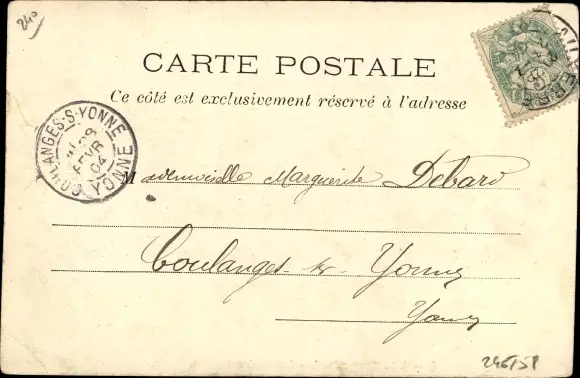 240
CARTE POSTALE
Ce côté est exclusivement réservé à l'adresse
COULANGES-S-YONNE
28
FEVR
04
YONNE
Mademoiselle Marguerite Debard
Coulanges-sr-Yonne
Yonne